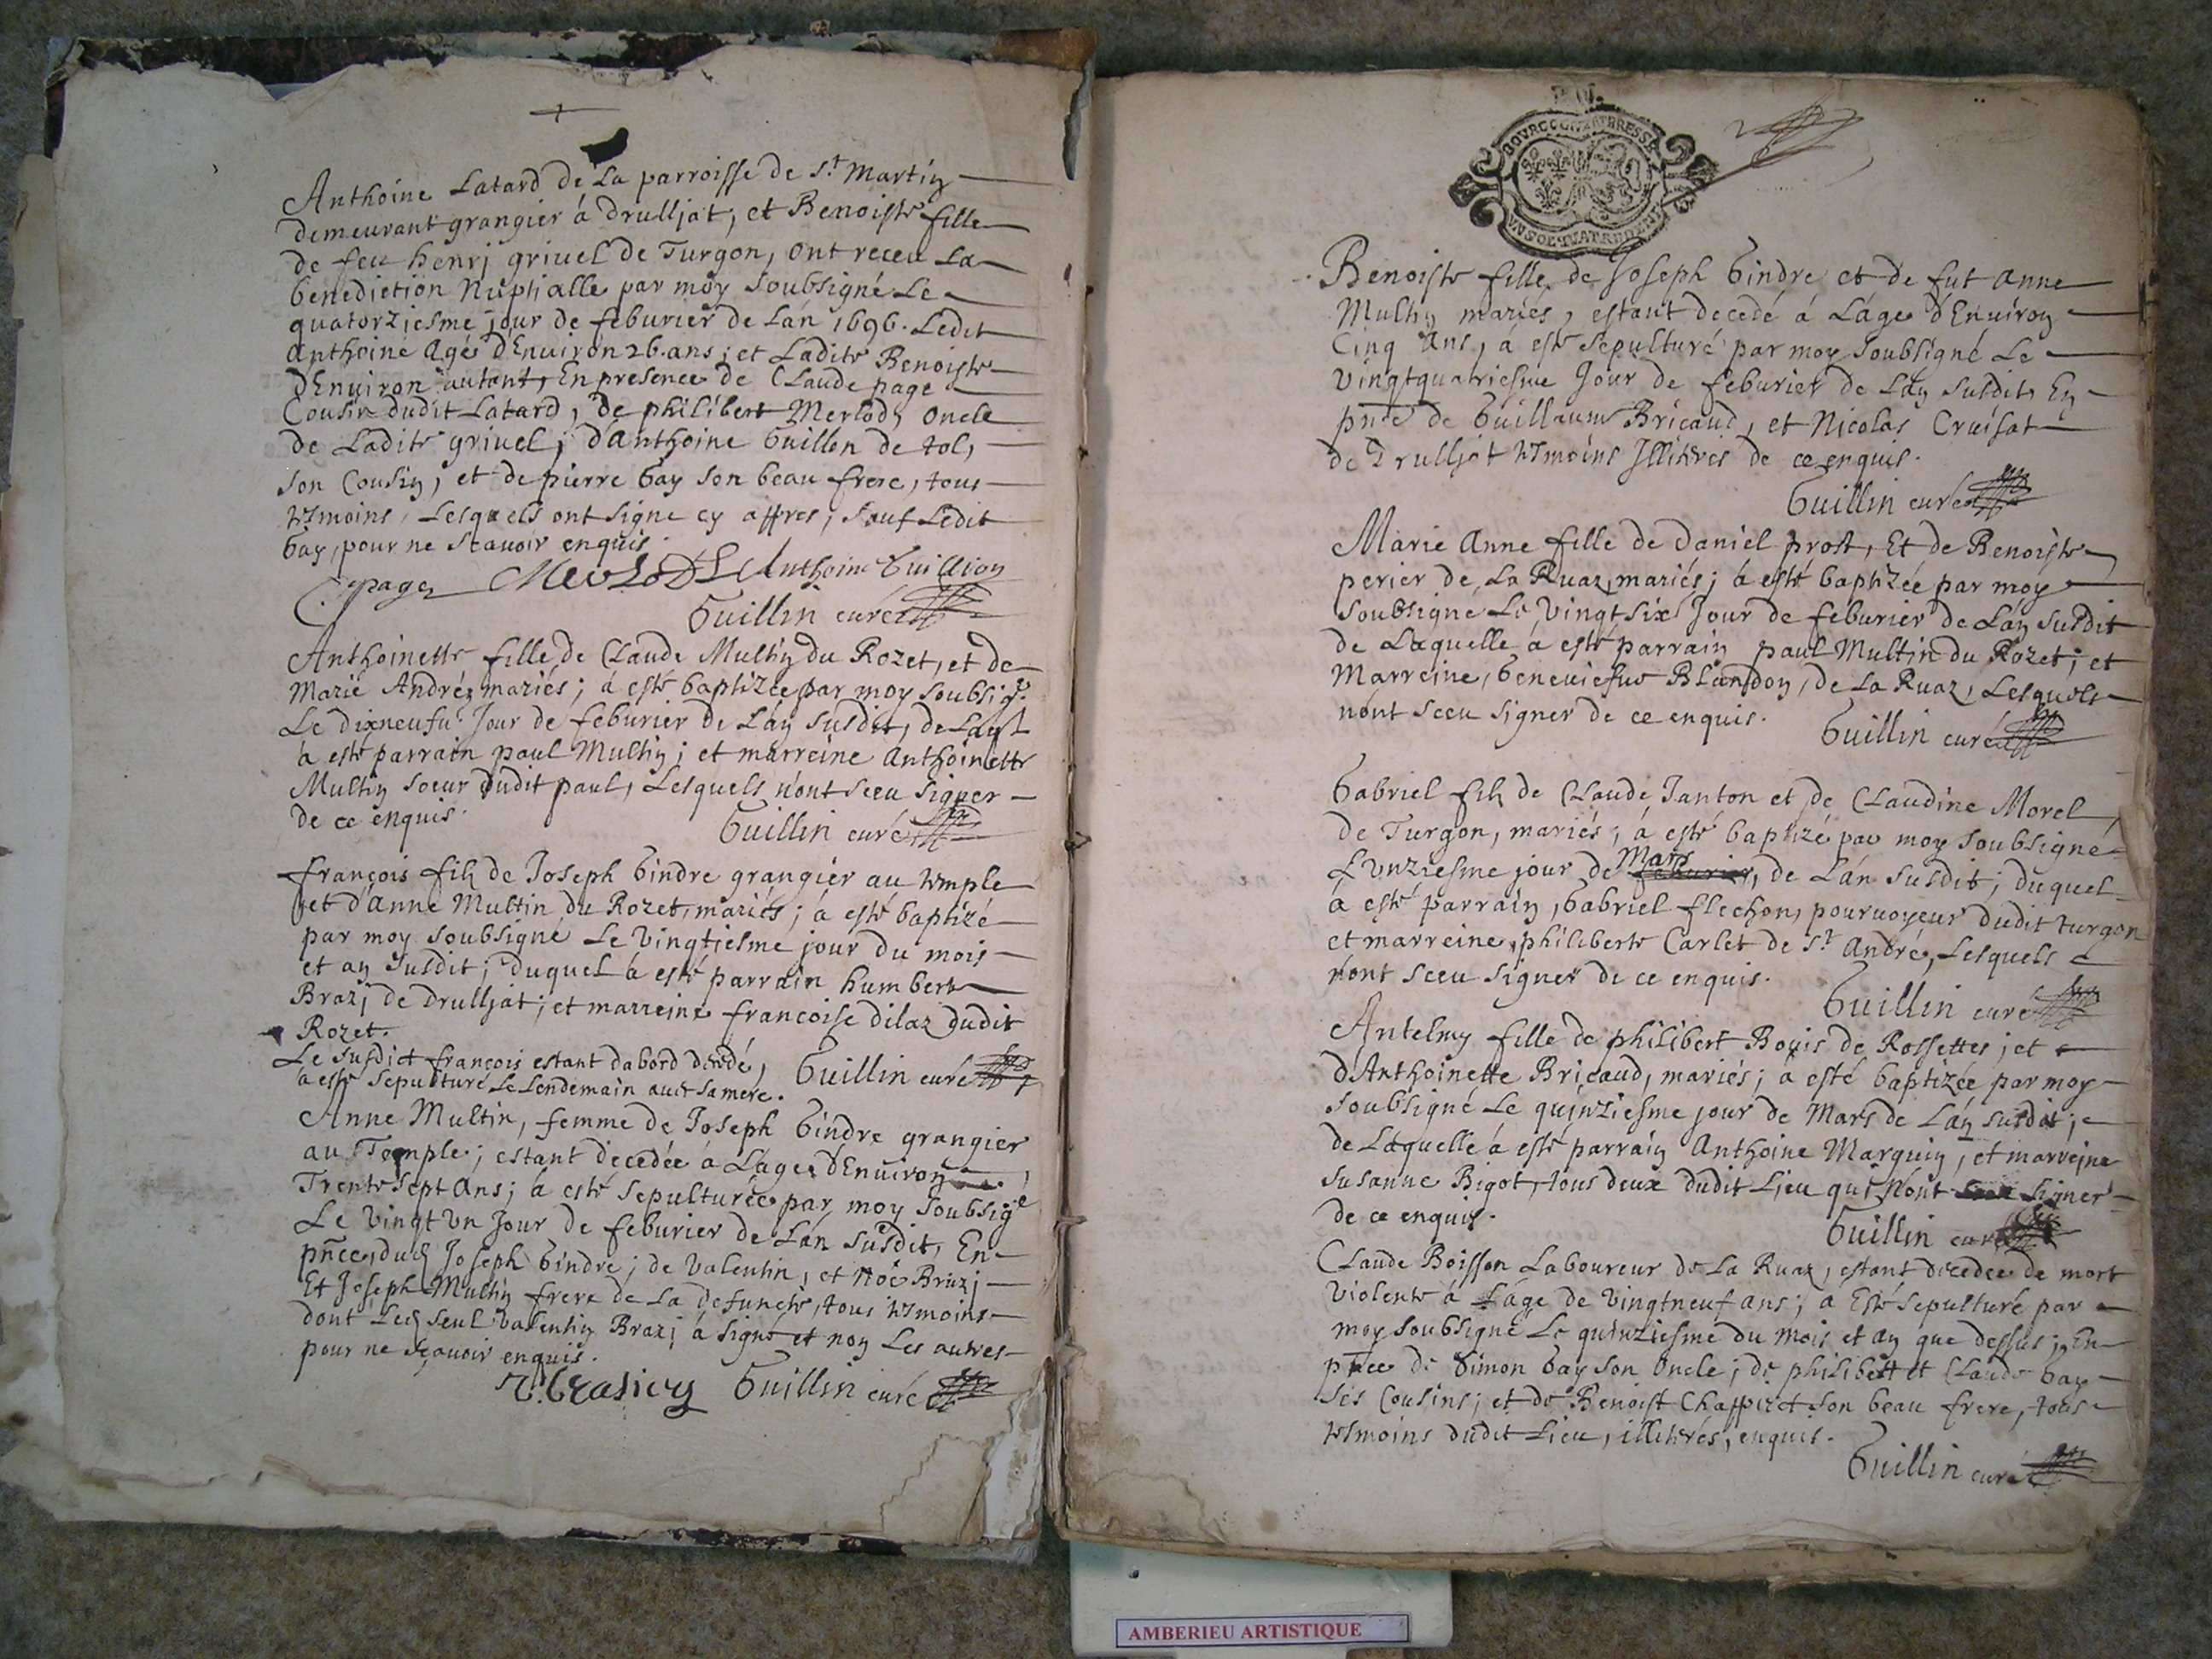 Anthoine Latard de La parroisse de St Martin
demeurant grangier à drulljat, et Benoiste fille
de feu henrj griuel de Turgon, ont receu La
benediction Nuptialle par moy soubsigné Le
quatorziesme jour de feburier de Lán 1696. Ledit
anthoine Agé dEnuiron 26. ans ; et Ladite Benoiste
dEnuiron autant, En presence de CLaude page
Cousin dudit Latard, de philibert Merlod, oncle
de Ladite griuel ; d'anthoine Guillon de tol,
son Cousin, et de pierre Gay son beau frere, tous
tesmoins, Lesquels ont signe cy appres, sauf Ledit
Gay, pour ne scauoir enquis.
C page Merlod Anthoine Guillion
Guillin curé
Anthoinette fille de CLaude Multin du Rozet, et de
Marie André mariés ; à esté baptizée par moy soubsigé
Le dixneufu. Jour de feburier de Lán susdit, de Laqll
à esté parrain paul Multin ; et marreine Anthoinette
Multin soeur dudit paul, Lesquels n'ont sceu signer
de ce enquis.
Guillin curé
françois fils de Joseph Gindre grangier au temple
et d'anne Multin du Rozet, mariés ; à esté baptizé
par moy soubsigné Le vingtiesme jour du mois
et an susdit ; duquel à esté parrain humbert
Brazj de drulljat ; et marreine francoise dilaz dudit
Rozet.
Le susdict françois estant dabord decedé,
à esté sepulturé Le Lendemain auec sa mere.
Guillin curé
Anne Multin, femme de Joseph Gindre grangier
au Temple ; estant decedée à Láge dEnuiron
Trente sept ans ; à esté sepulturée par moy soubsigé
Le vingt vn Jour de feburier de Lán susdit, En
pnce, dud Joseph Gindre ; de valentin, et noé Brazj
Et Joseph Multin frere de La defuncte, tous tesmoins
dont Led seul valentin Brazj à signé et non Les autres
pour ne sçauoir enquis.
Guillin curé
BOVRGOGNE ET BRESSE
Benoiste fille de Joseph Gindre et de fut anne
Multin mariés, estant decedé à Láge dEnuiron
Cinq Ans, a esté sepulturé par moy soubsigné Le
vingtquatriesme Jour de feburier de Lán susdit, En
pnce de Guillaume Bricaud, et Nicolas Cruisat
de Drulljat tesmoins Jllitérés de ce enquis.
Guillin curé
Marie Anne fille de daniel prost, Et de Benoiste
perier de La Ruaz, mariés ; à esté baptizée par moy
soubsigné Le vingt six Jour de feburier de Lán susdit
de Laquelle a esté parrain paul Multin du Rozet ; et
Marreine, Geneuiefue Blandon, de La Ruaz, Lesquels
nónt sceu signer de ce enquis.
Guillin curé
Gabriel fils de CLaude Janton et de CLaudine Morel,
de Turgon, mariés ; à esté baptizé par moy soubsigné
L'vnziesme jour de feburier Mars, de Lán susdit ; duquel
à esté parrain, Gabriel flechon, pouruoyeur dudit turgon
et marreine, philiberte Carlet de St André, Lesquels
nónt sceu signer de ce enquis.
Guillin curé
Antelmy fille de philibert Bouis de Rossettes ; et
d'Anthoinette Bricaud, mariés ; à esté baptizée par moy
soubsigné Le quinziesme jour de Mars de Lán susdit ;
de Laquelle à esté parrain Anthoine Marquin, et marreine
Susanne Bigot, tous deux dudit Lieu qui nónt sceu signer
de ce enquis.
Guillin curé
CLaude Boisson Laboureur de La Ruaz, estant decedee de mort
violente à Láge de vingtneuf ans ; à Esté sepulturé par
moy soubsigné Le quinziesme du mois et an que dessus ; En
pnce de Simon Gay son Oncle ; de philibert et CLaude Gay
ses Cousins ; et de Benoist Chappuzet son beau frere, tous
tesmoins dudit Lieu, illitérés, enquis.
Guillin curé
AMBERIEU ARTISTIQUE